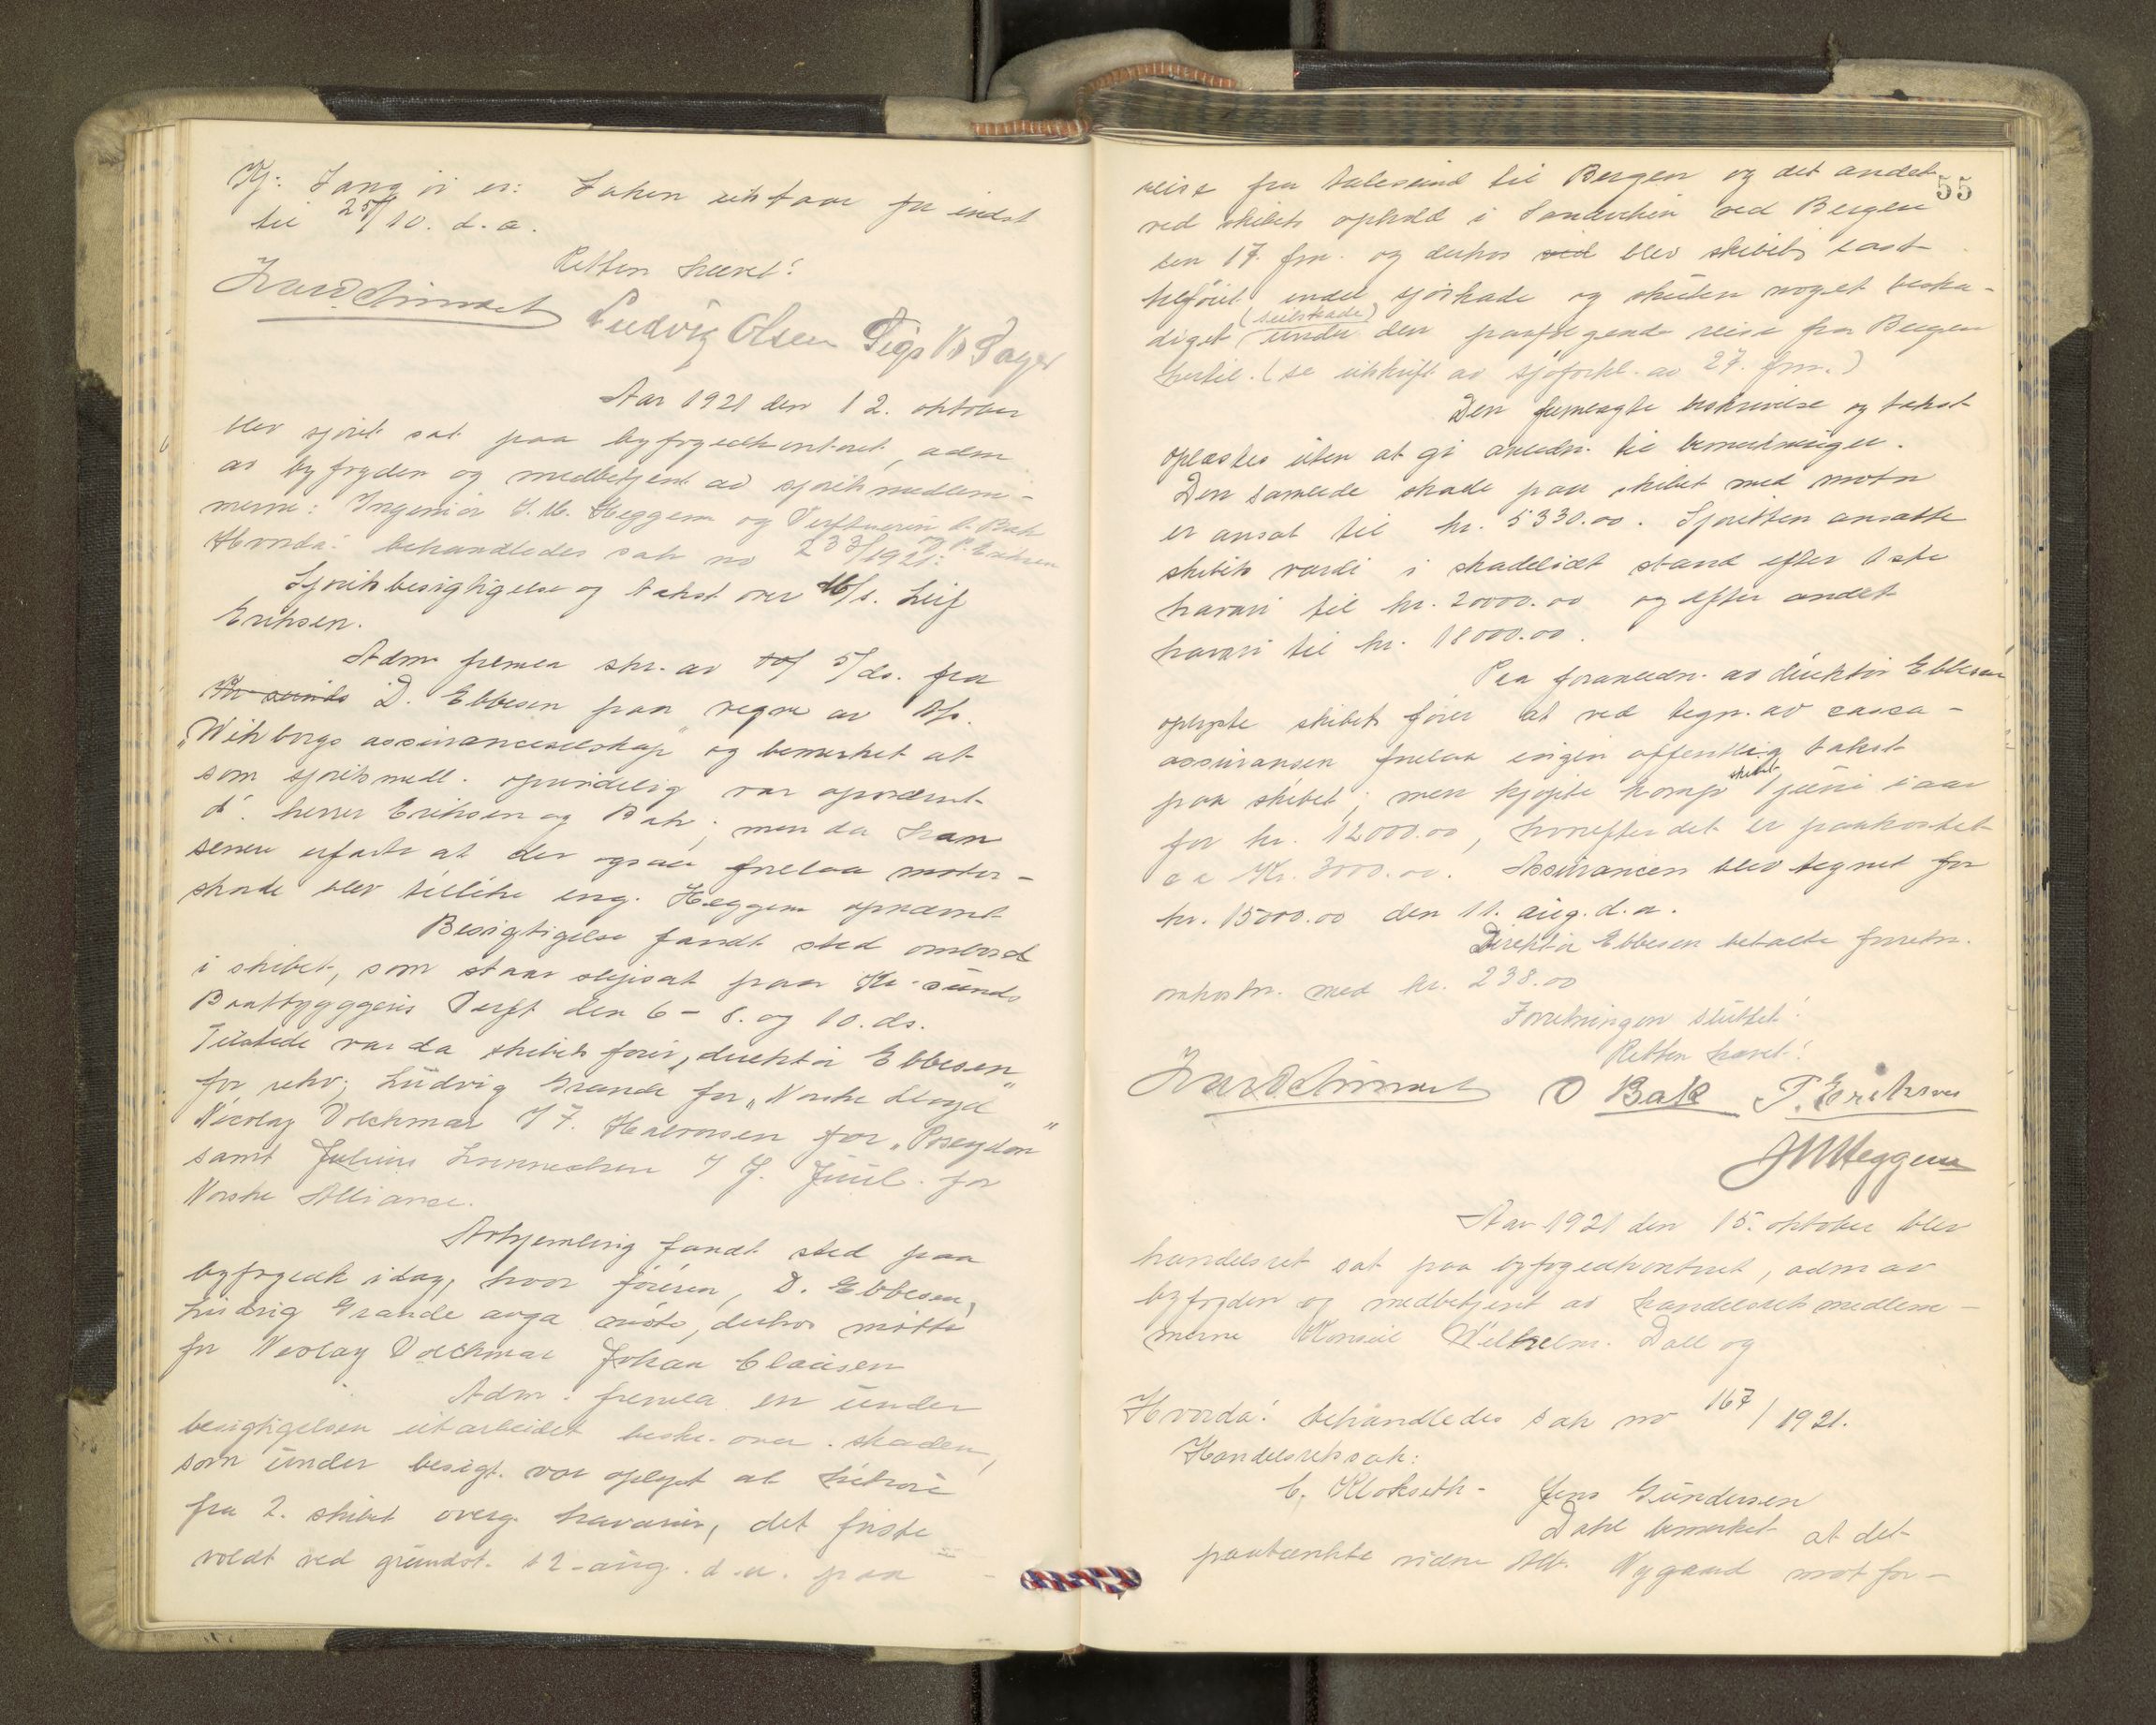 Kj: Saken utstaar for indst
til 25/10. d. a.
Retten hævet!
Ludvig Olsen Sigv
Aar 1921 den 12. oktober
blev sjøret sat paa byfogedkontoret, adm
av byfogden og medbetjent av sjøretsmedlem-
merne: Ingeniør J. M. Heggem og O. Bak
og P. Eriksen
Hvorda: behandledes sak no 233/1921:
Sjøretsbesigtigelse og takst over M/s. Leif
Eriksen.
Adm fremla skr. av 10/ 5/ds. fra
Kr. sunds D. Ebbesen paa vegne av A/s.
"Wihborgs assuranceselskap" og bemerket at
som sjøretsmedl. oprindelig var opnævnt
d'. herrer Eriksen og Bak; men da han
senere erfarte at der ogsaa forelaa motor-
skade blev tillike ing. Heggem opnævnt
Besigtigelse fandt sted ombord
i skibet, som staar slipsat paa Kr. sunds
Baatbyggeris Verft den 6 - 8. og 10. ds.
Tilstede var da skibets fører, direktør Ebbesen
for rekv; Ludvig Grande for "Norske Lloyd"
Nicolay Volckmar / F. Halvorsen for "Poseydon"
samt Julius / J. Juul. for
Norske Alliance.
Avhjemling fandt sted paa
byfogedk idag, hvor føreren, D. Ebbesen,
Ludvig Grande avga møte, derhos møtte
for Nicolay Volckmar Johan Clausen
Adm. fremla en under
besigtigelsen utarbeidet beskr. over skaden,
som under besigt. var oplyst at hitrøre
fra 2. skibet overg. havarier, det første
voldt ved grundst. 12 aug. d. a. paa
55
reise fra Aalesund til Bergen og det andet
ved skibets ophold i Sandviken ved Bergen
den 17. fm. og derhos ved blev skibets last
tilføiet endel sjøskade og skuten noget beska-
(seilskade)
diget under den paafølgende reise fra Bergen
hertil. (se utskrift av sjøforkl. av 27. fm.)
Den fremlagte beskrivelse og takst
oplæstes uten at gi anledn. til bemerkninger.
Den samlede skade paa skibet med motor
er ansat til kr. 5330.00. Sjøretten ansatte
skibets værdi i skadelidt stand efter 1ste
havari til kr. 20000.00 og efter andet
havari til kr. 18000.00.
Paa foranledn. av direktør Ebbesen
oplyste skibets fører at ved tegn. av casco-
assuransen forelaa ingen offentlig takst
paa skibet; men kjøpte komp skibet juni i aar
for kr. 12000.00, hvorefter det er paakostet
ca Kr. 3000.00. Assurancen blev tegnet for
kr. 15000.00 den 11. aug. d. a.
Direktør Ebbesen betalte forretn.
omkostn. med kr. 238.00
Forretningen sluttet!
Retten hævet!
O Bak P. Eriksen
JM Heggem
Aar 1921 den 15. oktober blev
handelsret sat paa byfogedkontoret, adm av
byfogden og medbetjent av handelsretsmedlem-
merne Konsul Wilhelm. Dall og
Hvorda: behandledes sak no 167/1921.
Handelsretssak:
C. Klokseth - Jens Gundersen
Dahl bemerket at det
paatænkte vidne Alb. Nygaard mot for-